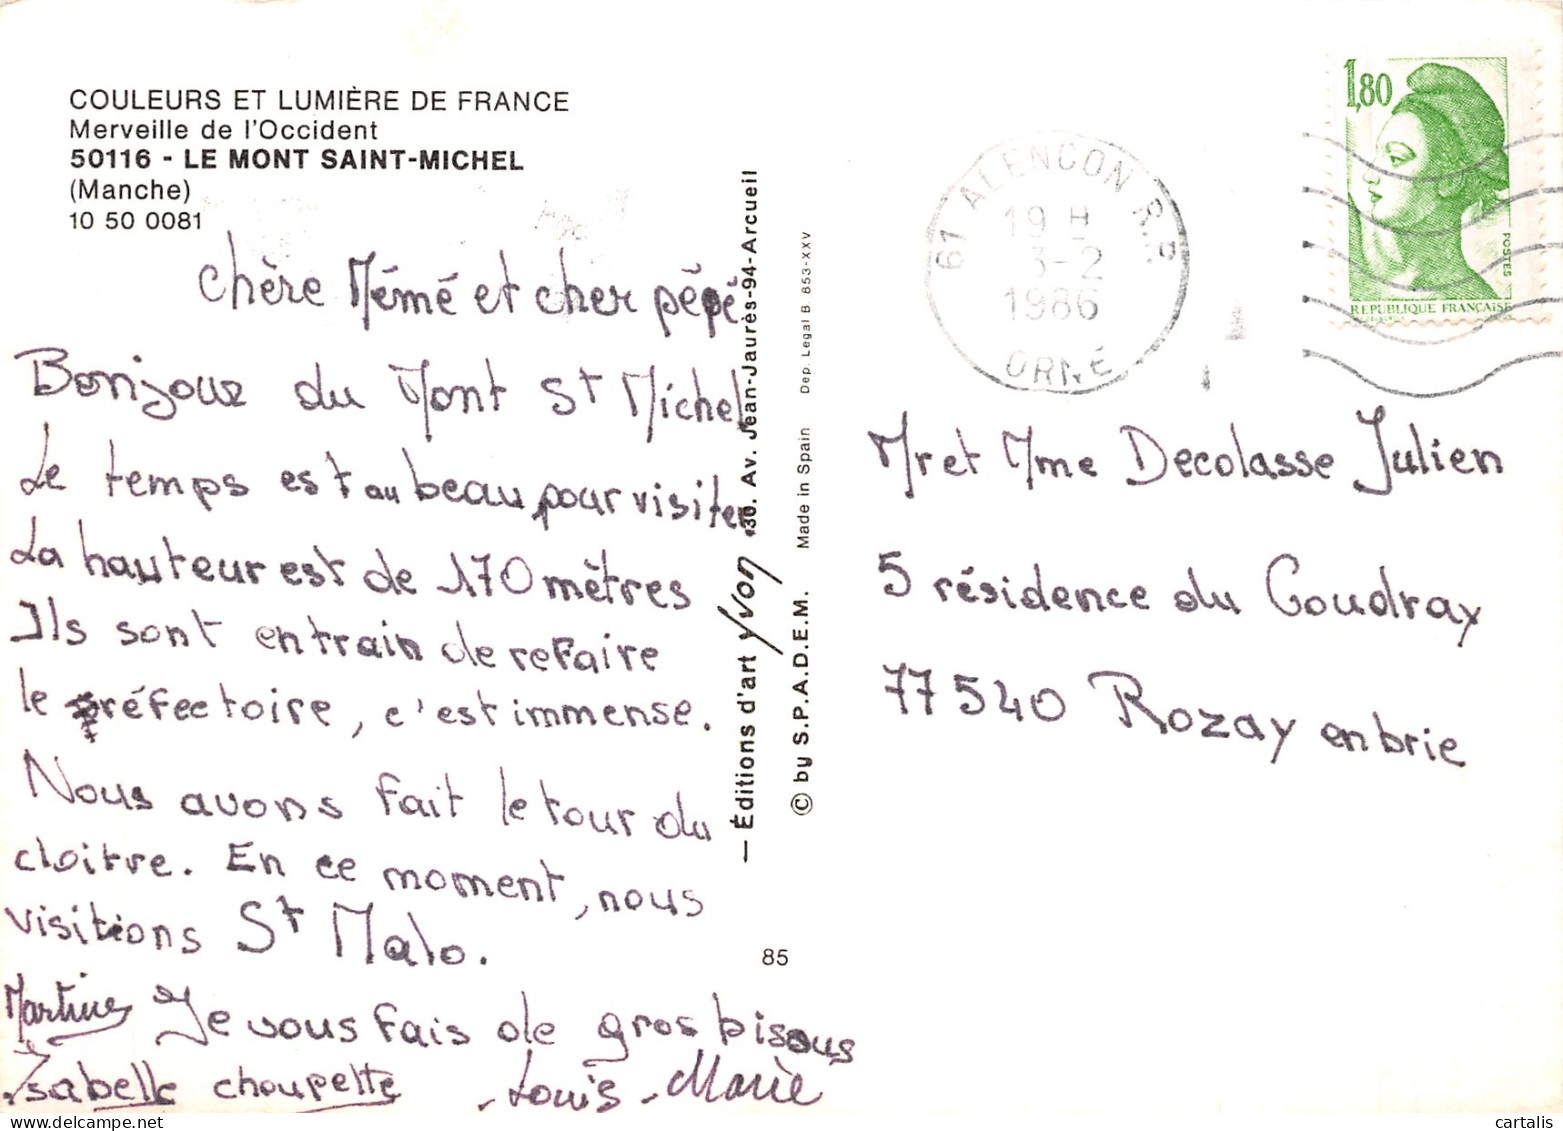 COULEURS ET LUMIÈRE DE FRANCE
Merveille de l'Occident
50116 - LE MONT SAINT-MICHEL
(Manche)
10 50 0081
Chère Mémé et cher pépé
Bonjour du Mont St Michel
Le temps est au beau, pour visiter
La hauteur est de 170 mètres
Ils sont entrain de refaire
le réfectoire, c'est immense.
Nous avons fait le tour du
cloitre. En ce moment, nous
visitions St Malo.
Martine Je vous fais de gros bisous
Isabelle choupette - Louis - Marie
— Éditions d'art Yvon 30, Av. Jean-Jaurès-94-Arcueil
© by S.P.A.D.E.M. Made in Spain Dep. Legal B. 853-XXV
85
61 ALENCON R.P.
19 H
3-2
1986
ORNE
1,80
POSTES
REPUBLIQUE FRANÇAISE
Mr et Mme Decolasse Julien
5 résidence du Coudray
77540 Rozay en brie
cartalis